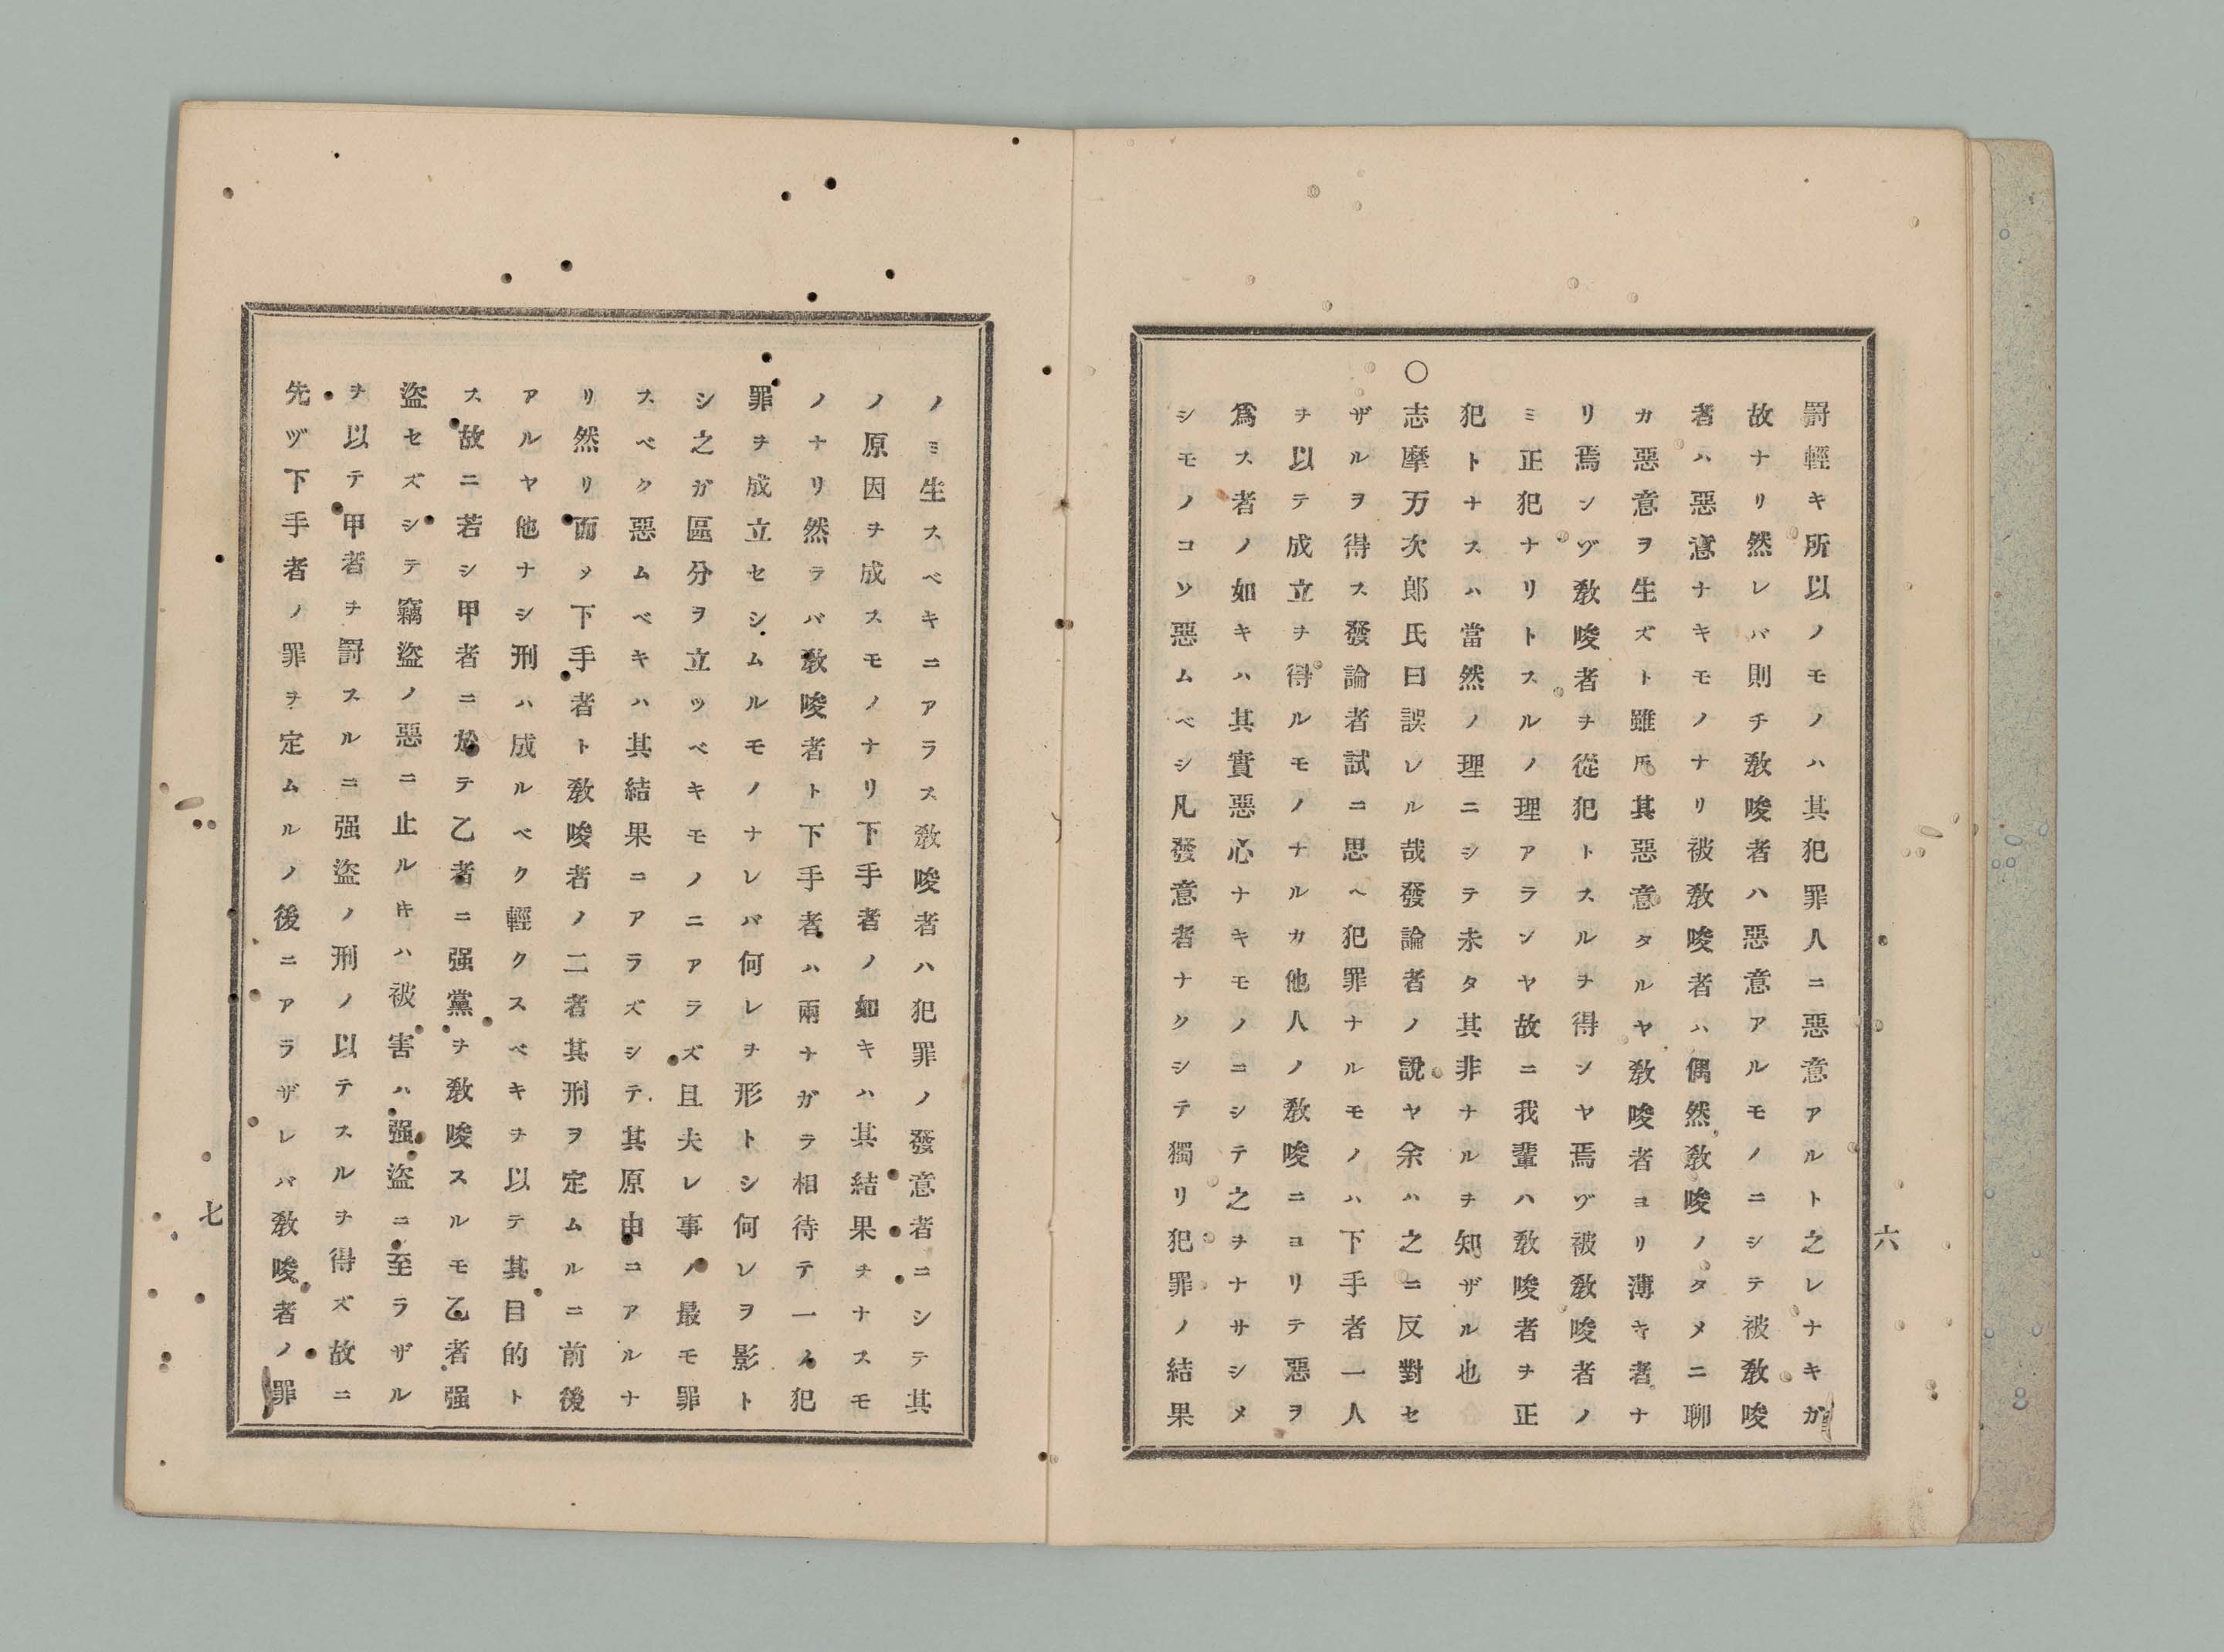 罸輕キ所以ノモノハ其犯罪人ニ惡意アルト之レナキガ
故ナリ然レバ則チ敎唆者ハ惡意アルモノニシテ被敎唆
者ハ惡意ナキモノナリ被敎唆者ハ偶然敎唆ノタメニ聊
カ惡意ヲ生ズト雖𪜈其惡意タルヤ敎唆者ヨリ薄キ者ナ
リ焉ンゾ敎唆者ヲ從犯トスルヲ得ンヤ焉ゾ被敎唆者ノ
ミ正犯ナリトスルノ理アランヤ故ニ我輩ハ敎唆者ヲ正
犯トナスハ當然ノ理ニシテ未タ其非ナルヲ知ラザル也
○志摩万次郎氏曰誤レル哉發論者ノ說ヤ余ハ之ニ反對セ
ザルヲ得ス發論者試ニ思ヘ犯罪ナルモノハ下手者一人
ヲ以テ成立ヲ得ルモノナルカ他人ノ敎唆ニヨリテ惡ヲ
爲ス者ノ如キハ其實惡心ナキモノニシテ之ヲナサシメ
シモノコソ惡ムベシ凡發意者ナクシテ獨リ犯罪ノ結果
六
ノミ生スベキニアラス敎唆者ハ犯罪ノ發意者ニシテ其
ノ原因ヲ成スモノナリ下手者ノ如キハ其結果ヲナスモ
ノナリ然ラバ敎唆者ト下手者ハ兩ナガラ相待テ一ノ犯
罪ヲ成立セシムルモノナレバ何レヲ形トシ何レヲ影ト
シ之ガ區分ヲ立ツベキモノニアラズ且夫レ事ノ最モ罪
スベク惡ムベキハ其結果ニアラズシテ其原由ニアルナ
リ然リ而メ下手者ト敎唆者ノ二者其刑ヲ定ムルニ前後
アルヤ他ナシ刑ハ成ルベク輕クスベキヲ以テ其目的ト
ス故ニ若シ甲者ニ於テ乙者ニ强黨ヲ敎唆スルモ乙者强
盜セズシテ竊盜ノ惡ニ止ルキハ被害ハ强盜ニ至ラザル
ヲ以テ甲者ヲ罸スルニ强盜ノ刑ノ以テスルヲ得ズ故ニ
先ヅ下手者ノ罪ヲ定ムルノ後ニアラザレバ敎唆者ノ罪
七